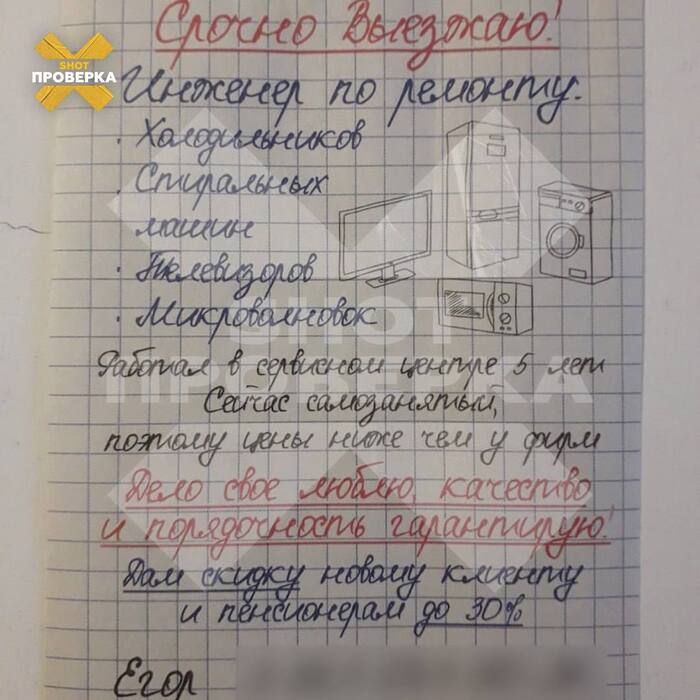 Срочно Выезжаю!
SHOT
ПРОВЕРКА
Инженер по ремонту:
· Холодильников
· Стиральных
машин
· Телевизоров
· Микроволновок
SHOT
ПРОВЕРКА
Работал в сервисном центре 5 лет
Сейчас самозанятый,
поэтому цены ниже чем у фирм
Дело свое люблю, качество
и порядочность гарантирую!
Дам скидку новому клиенту
и пенсионерам до 30%
Егор